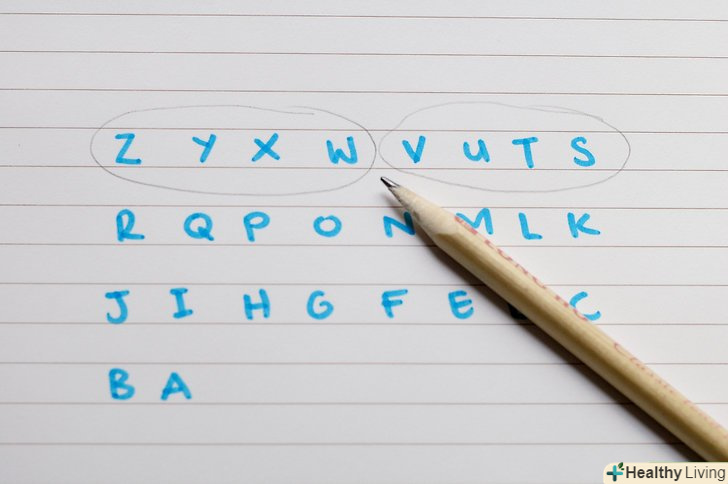 Z Y X W V U T S
R Q P O N M L K
J I H G F E C
B A
Healthy Living